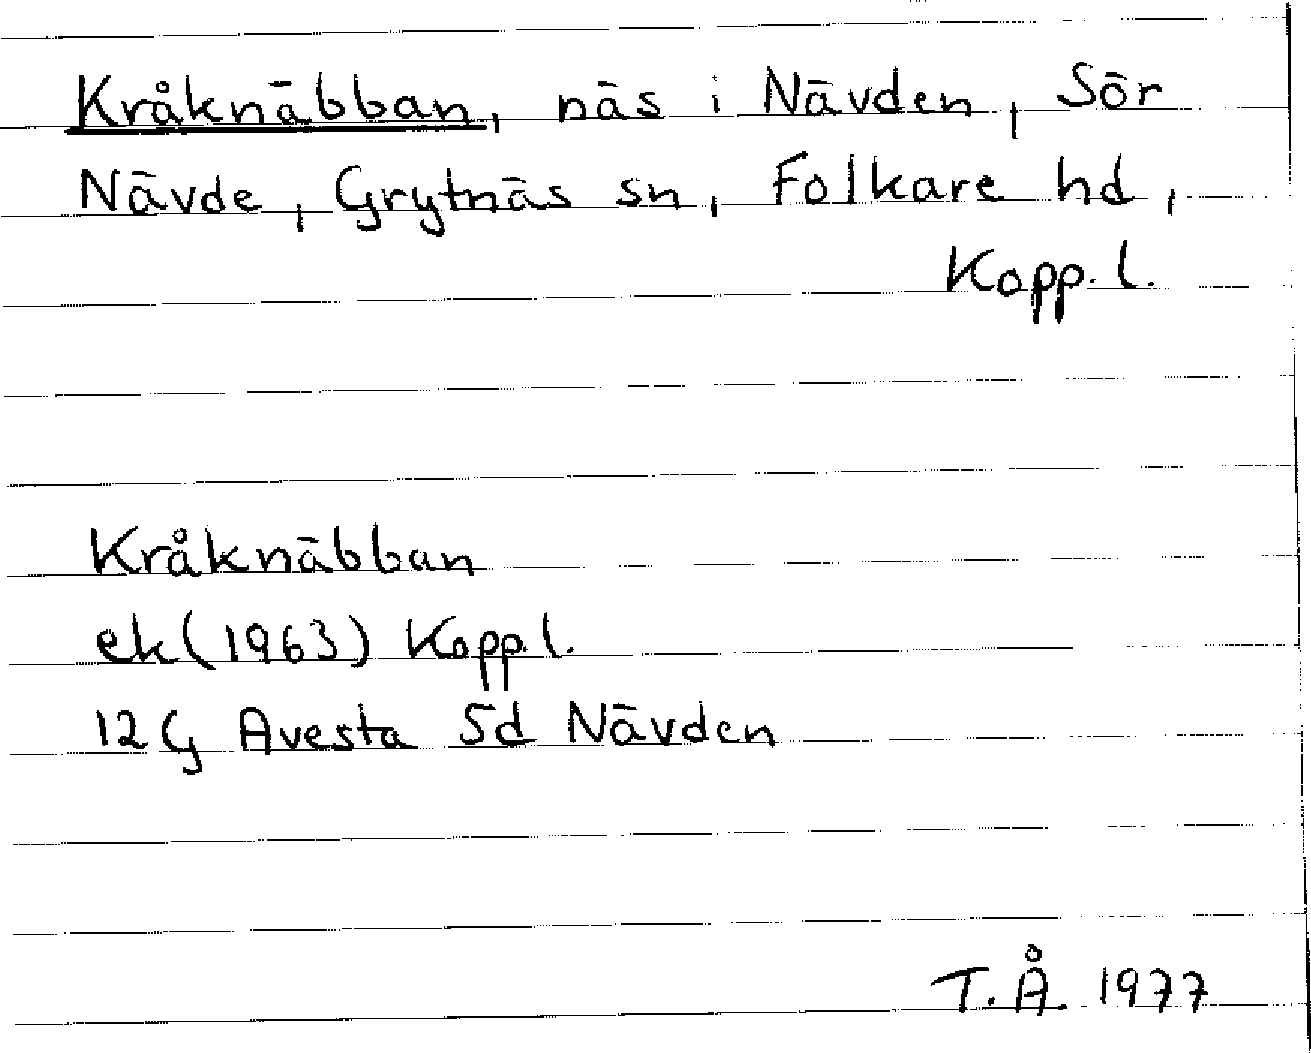 Kråknäbban, näs i Nävden, Sör
Nävde, Grytnäs sn, Folkare hd,
Kopp. l.
Kråknäbban
ek (1963) Kopp. l.
12 G Avesta 5d Nävden
T. Å. 1977